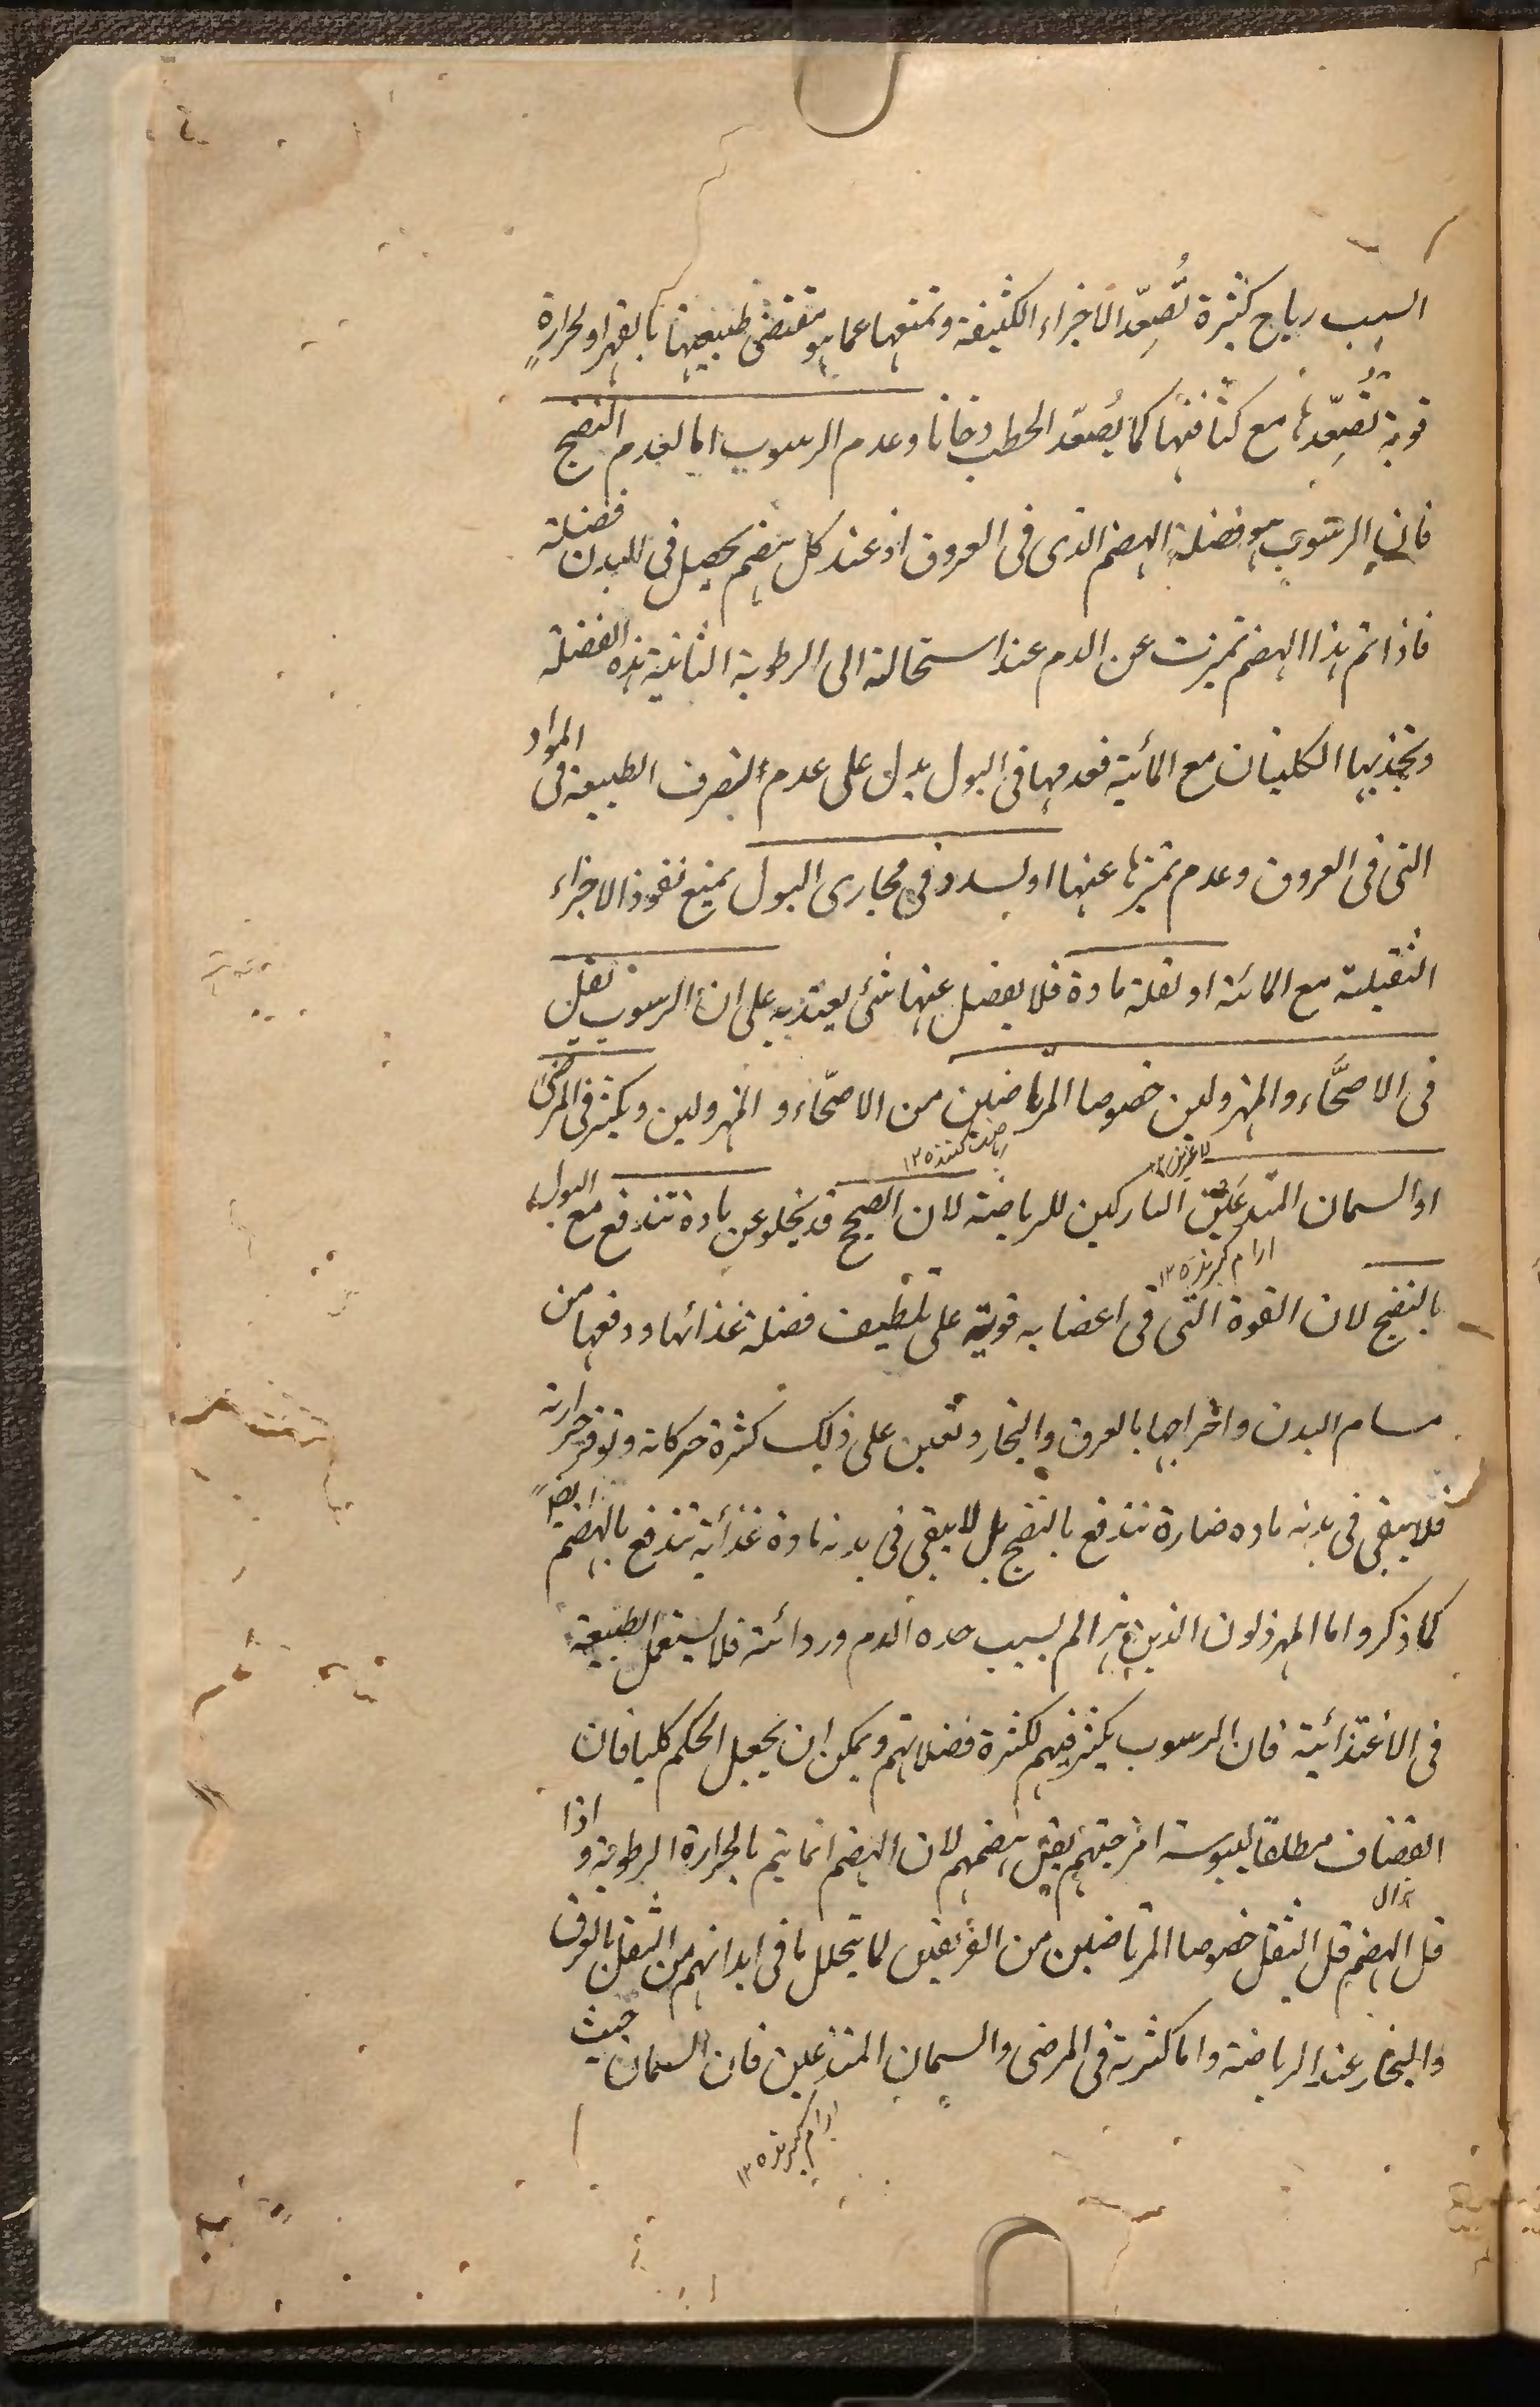 السبب رياح كثيرة تُصعِّد الاجزاء الكثيفة وتمنعها عما هو مقتضى طبيعتها بالقهر او لحرارةٍ
قوية تُصعِّدها مع كثافتها كما يُصعّد الحطب دخانا وعدم الرسوب اما لعدم النضج
فان الرسوب هو فضلة الهضم الذى فى العروق اذ عند كل هضم يحصل فى البدن فضلة
فاذا تم هذا الهضم تميزت عن الدم عند استحالته الى الرطوبة الثانية هذه الفضلة
وتجذبها الكليتان مع المائية فعدمها فى البول يدل على عدم تصرف الطبيعة فى المواد
التى فى العروق وعدم تميزها عنها او لسدد فى مجارى البول يمنع نفوذ الاجزاء
الثقيلة مع المائية او لقلة مادة فلا يفضل عنها شئ يعتد به على ان الرسوب يقل
فى الاصحَّاء والمهزولين خصوصا المرتاضين من الاصحّاء و المهزولين ويكثر فى المرضى
رياضت كنند ١٢٥
لاغرين ١٢
او السمان المتدعين التاركين للرياضة لان الصحيح قد يخلو عن مادة تندفع مع البول
ارام كيرند ١٢٥
بالنضج لان القوة التى فى اعضا به قوية على تلطيف فضلة غذائها ودفعها من
مسام البدن واخراجها بالعرق والبخار وتعين على ذلك كثرة حركاته وتوفر حرارته
فلا يبقى فى بدنه مادة ضارة تندفع بالنضج بل لا يبقى فى بدنه مادة غذائية تندفع بالهضم ايضاً
كما ذكر واما المهزولون الذين هزالهم بسبب حدة الدم وردائته فلا يستعمل الطبيعة
فى الاغتذائية فان الرسوب يكثر فيهم لكثرة فضلاتهم ويمكن ان يجعل الحكم كليا فان
القضاف مطلقا ليبوسة امزجتهم يقل هضمهم لان الهضم انما يتم بالحرارة الرطوبة و اذا
قل الهضم قل الثفل خصوصا المرتاضين من الفريقين لما يتحلل ما فى ابدانهم من الثفل بالعرق
والبخار عند الرياضة واما كثرته فى المرضى والسمان المتدعين فان السمان حيث
ارام كيرند ١٢٥